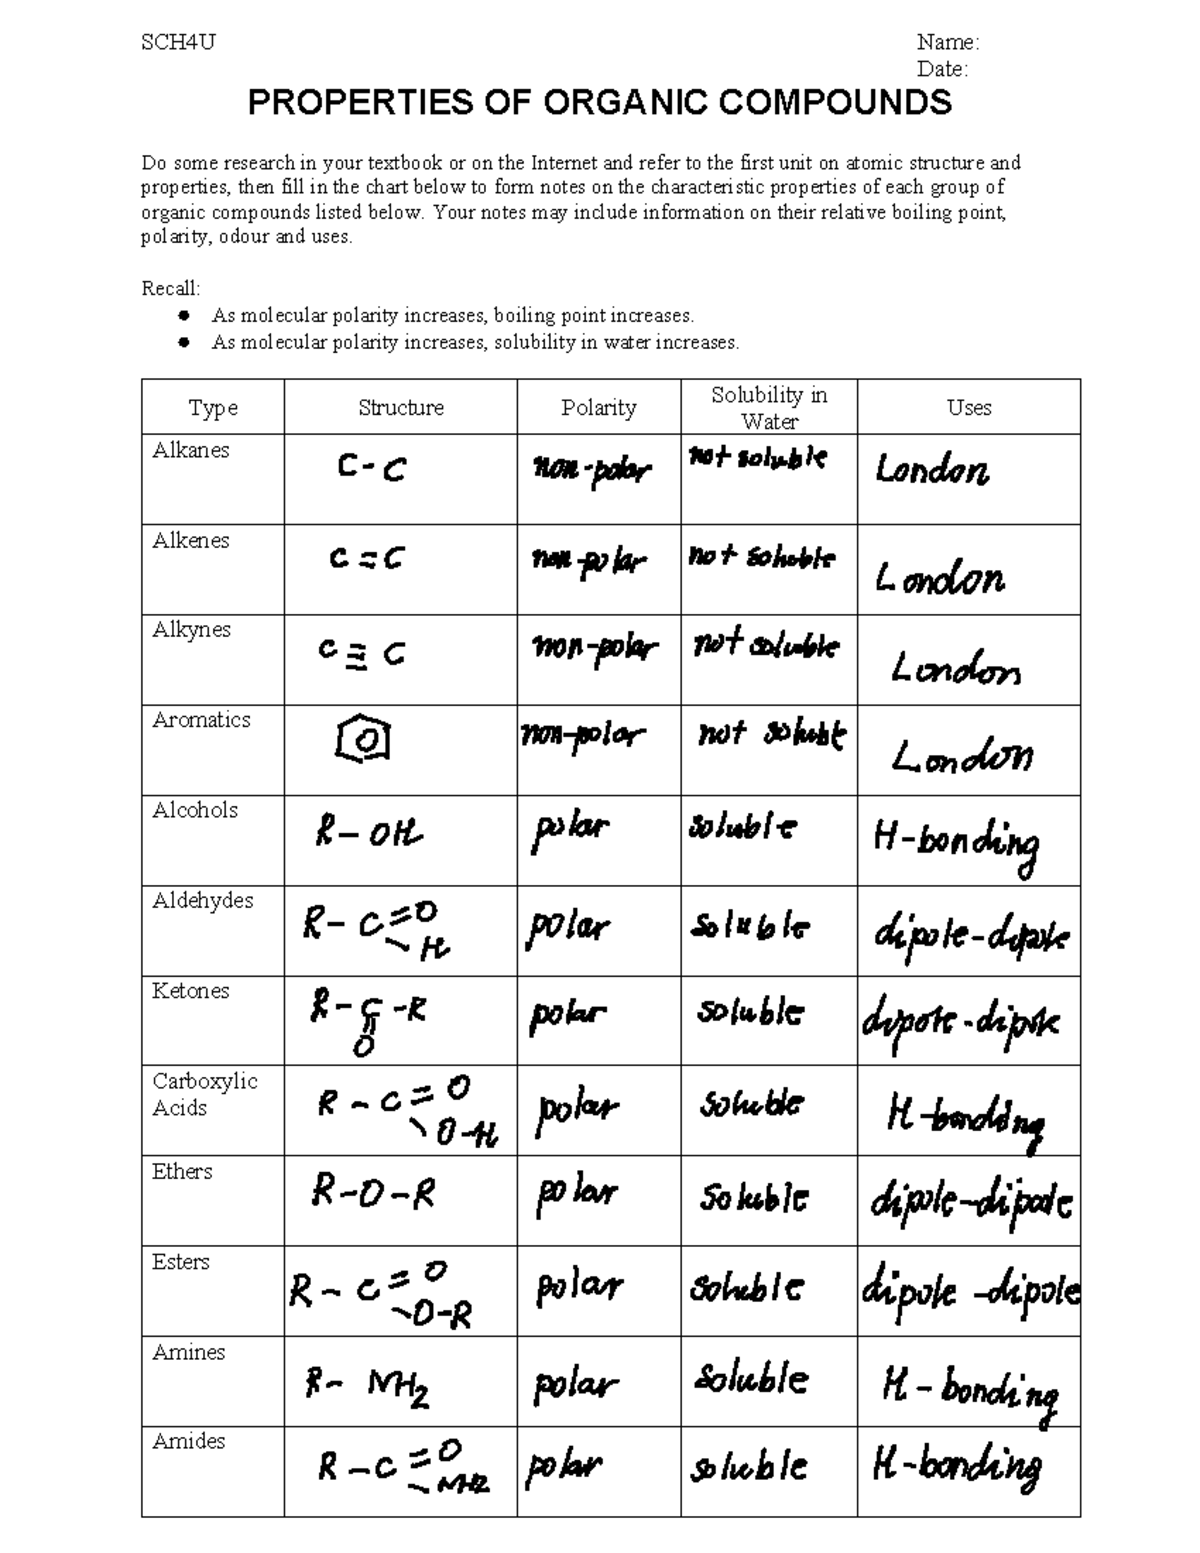 SCH4U
Name:
Date:
PROPERTIES OF ORGANIC COMPOUNDS
Do some research in your textbook or on the Internet and refer to the first unit on atomic structure and
properties, then fill in the chart below to form notes on the characteristic properties of each group of
organic compounds listed below. Your notes may include information on their relative boiling point,
polarity, odour and uses.
Recall:
● As molecular polarity increases, boiling point increases.
● As molecular polarity increases, solubility in water increases.
Type Structure Polarity Solubility in Water Uses
Alkanes C-C non-polar not soluble London
Alkenes C=C non-polar not soluble London
Alkynes C≡C non-polar not soluble London
Aromatics non-polar not soluble London
Alcohols R-OH polar soluble H-bonding
Aldehydes R-C=O
-H polar soluble dipole-dipole
Ketones R-C-R
=O polar soluble dipole-dipole
Carboxylic
Acids R-C=O
\O-H polar soluble H-bonding
Ethers R-O-R polar soluble dipole-dipole
Esters R-C=O
\O-R polar soluble dipole-dipole
Amines R-NH2 polar soluble H-bonding
Amides R-C=O
-NH2 polar soluble H-bonding